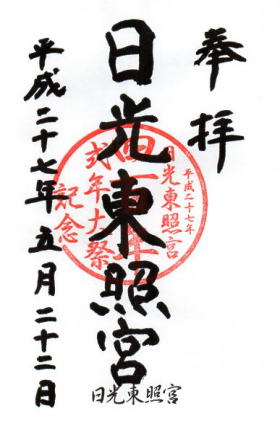 奉拝
日光東照宮
平成二十七年五月二十二日
平成二十七年
日光東照宮
四百年
式年大祭
記念
日光東照宮